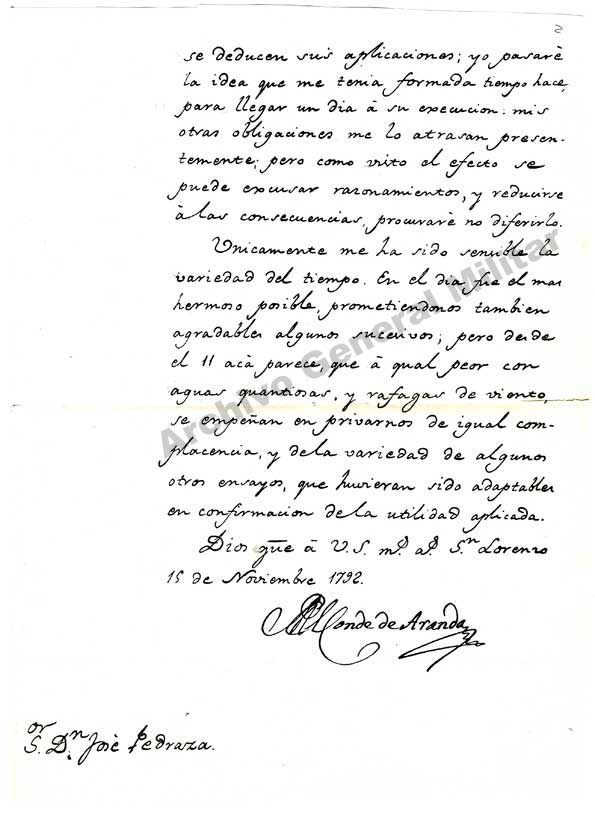 2
se deducen sus aplicaciones; yo pasarè
la idea que me tenia formada tiempo hace,
para llegar un dia à su execucion: mis
otras obligaciones me lo atrasan presen-
temente; pero como visto el efecto se
puede excusar razonamientos, y reducirse
à las consecuencias, procurarè no diferirlo.
Unicamente me ha sido sensible la
variedad del tiempo. En el dia fue el mas
hermoso posible, prometiendonos tambien
agradables algunos sucesivos; pero desde
el 11 acà parece, que à qual peor con
aguas quantiosas, y rafagas de viento,
se empeñan en privarnos de igual com-
placencia, y dela variedad de algunos
otros ensayos, que huvieran sido adaptables
en confirmacion de la utilidad aplicada.
Dios gũe à V.S. m.s a.s S.n Lorenzo
15 de Noviembre 1792.
El Conde de Aranda
S.or D.n Josè Pedraza.
Archivo General Militar